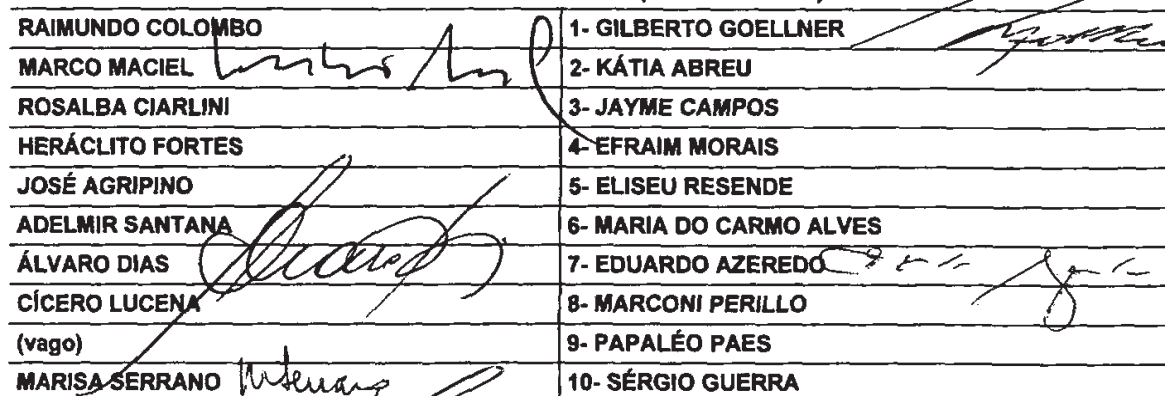 RAIMUNDO COLOMBO 1- GILBERTO GOELLNER
MARCO MACIEL 2- KÁTIA ABREU
ROSALBA CIARLINI 3- JAYME CAMPOS
HERÁCLITO FORTES 4- EFRAIM MORAIS
JOSÉ AGRIPINO 5- ELISEU RESENDE
ADELMIR SANTANA 6- MARIA DO CARMO ALVES
ÁLVARO DIAS 7- EDUARDO AZEREDO
CÍCERO LUCENA 8- MARCONI PERILLO
(vago) 9- PAPALÉO PAES
MARISA SERRANO 10- SÉRGIO GUERRA